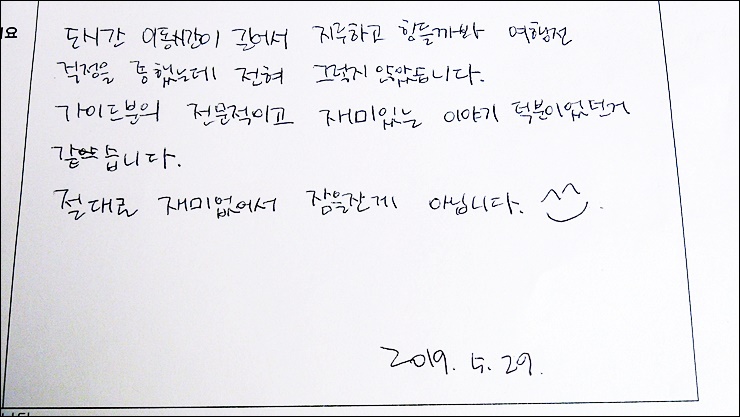 요
도시간 이동시간이 길어서 지루하고 힘들까봐 여행전
걱정을 좀 했는데 전혀 그렇지 않았습니다.
가이드분의 전문적이고 재미있는 이야기 덕분이었던거
같습니다.
절대로 재미없어서 잠을잔게 아닙니다. ^^
2019. 5. 29.